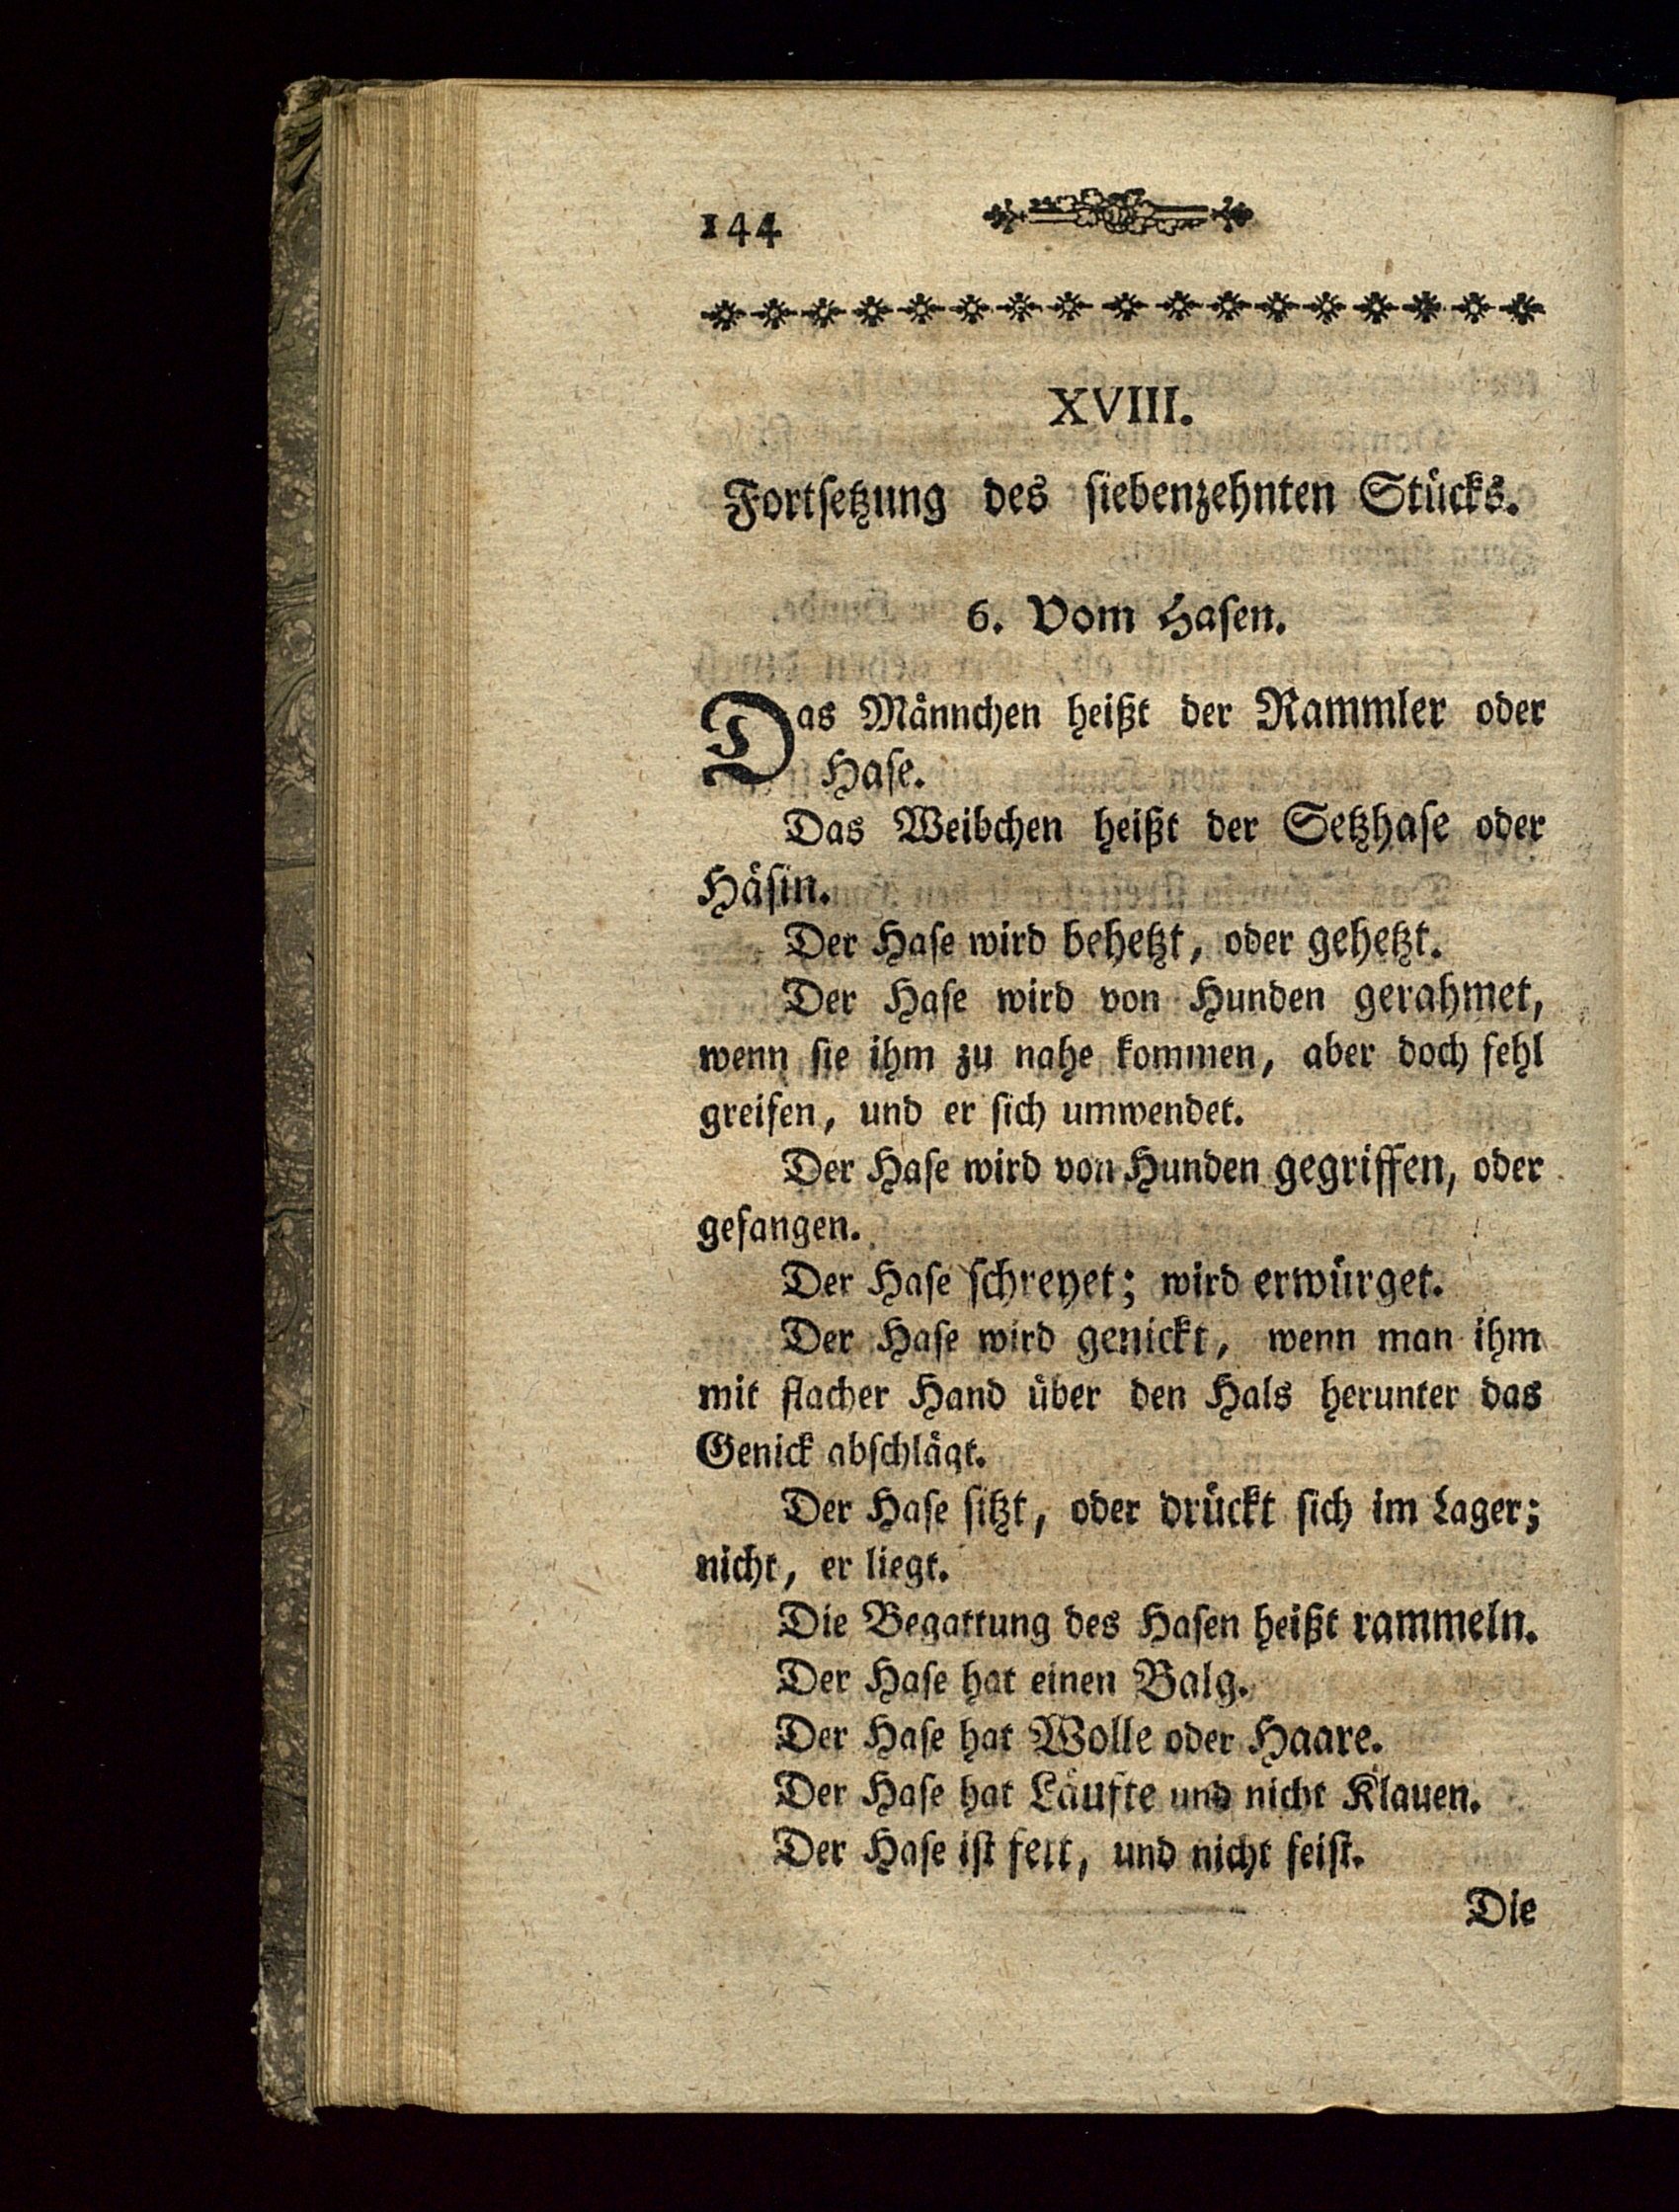 144
XVIII.
Fortſetzung des ſiebenzehnten Stücks.
6. Vom Haſen.
Das Männchen heißt der Rammler oder
Haſe.
Das Weibchen heißt der Setzhaſe oder
Häſin.
Der Haſe wird behetzt, oder gehetzt.
Der Haſe wird von Hunden gerahmet,
wenn ſie ihm zu nahe kommen, aber doch fehl
greifen, und er ſich umwendet.
Der Haſe wird von Hunden gegriffen, oder
gefangen.
Der Haſe ſchreyet; wird erwürget.
Der Haſe wird genickt, wenn man ihm
mit flacher Hand über den Hals herunter das
Genick abſchlägt.
Der Haſe ſitzt, oder drückt ſich im Lager;
nicht, er liegt.
Die Begattung des Haſen heißt rammeln.
Der Haſe hat einen Balg.
Der Haſe hat Wolle oder Haare.
Der Haſe hat Läufte und nicht Klauen.
Der Haſe iſt fett, und nicht feiſt.
Die